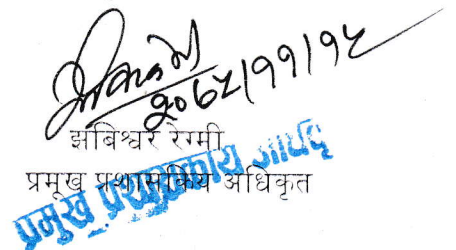 २०७८।११।१८
झबिश्वर रेग्मी
प्रमुख प्रशासकिय अधिकृत
प्रमुख प्रशासकीय